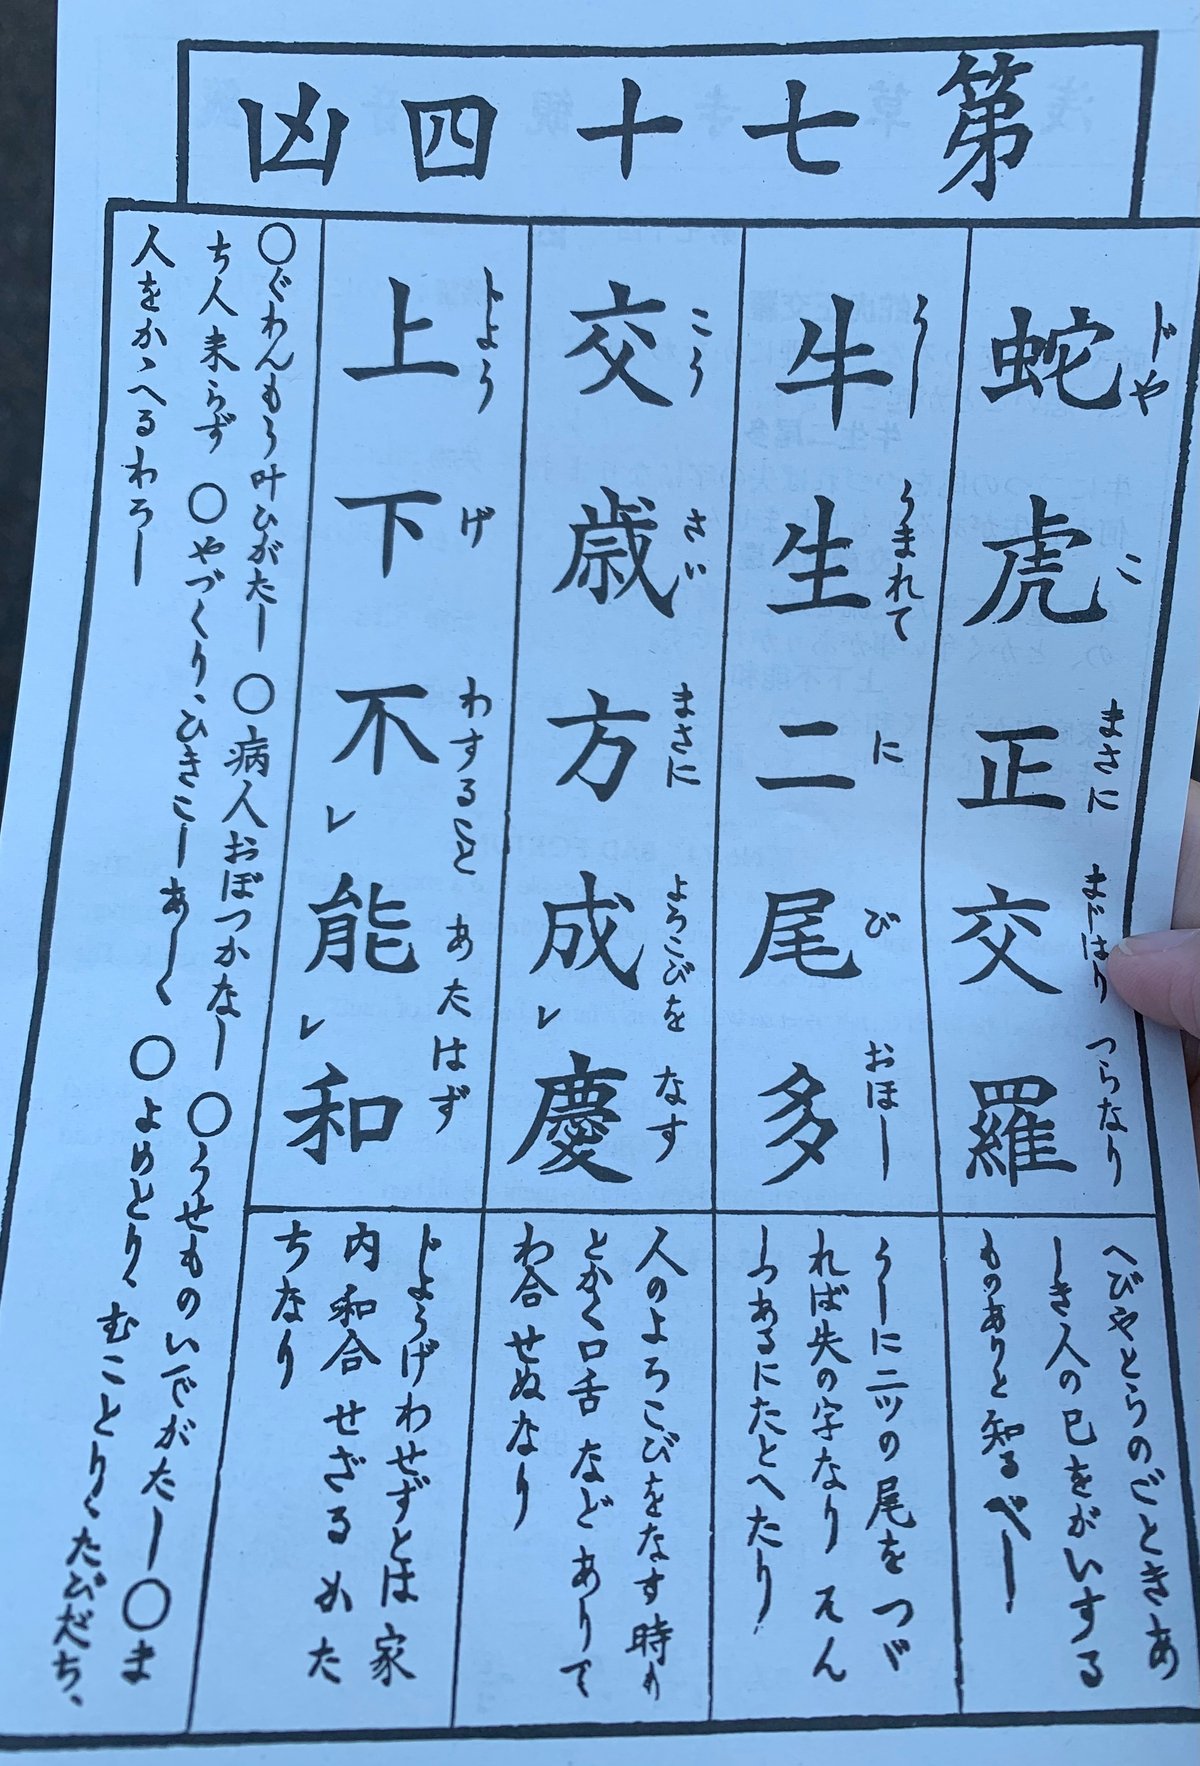 第七十四凶
蛇虎正交羅
じや こ まさに まじはり つらなり
へびやとらのごときあ
しき人の巳をがいする
ものありと知るべし
牛生二尾多
うし うまれて に び おほし
うしに二ツの尾をつゞ
れば失の字なり えん
しつあるにたとへたり
交歳方成レ慶
こう さい まさに よろこびを なす
人のよろこびをなす時も
とかく口舌などありて
わ合せぬなり
上下不レ能レ和
じよう げ わすること あたはず
じようげわせずとは家
内和合せざるかた
ちなり
〇ぐわんもう叶ひがたし 〇病人おぼつかなし 〇うせものいでがたし 〇ま
ち人来らず 〇やづくり、ひきこしあしく 〇よめとり、むことり、たびだち、
人をかゝへるわろし